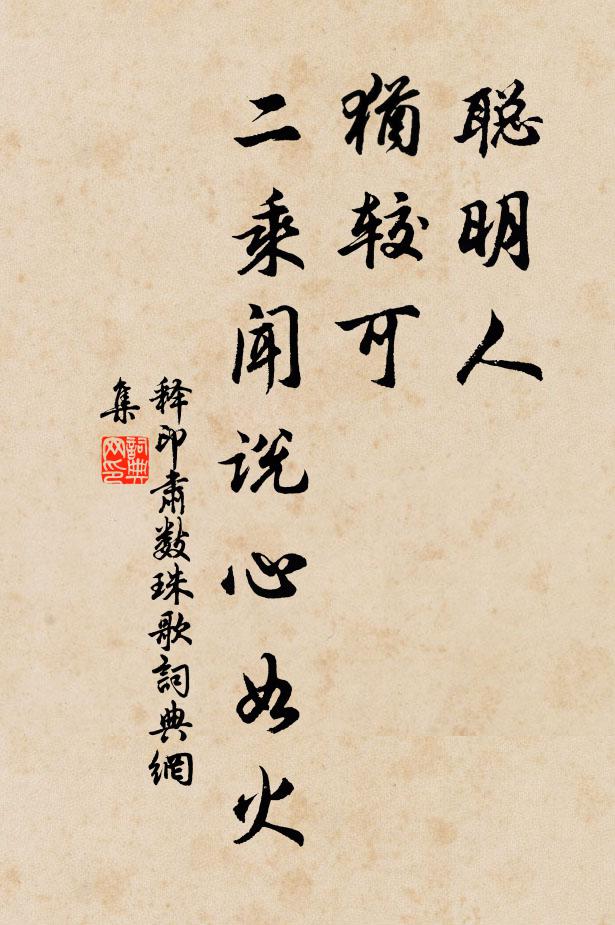 聪明人
猶较可
二乘闻说心如火
释印肃数珠歌詞典網
集
詞典网印